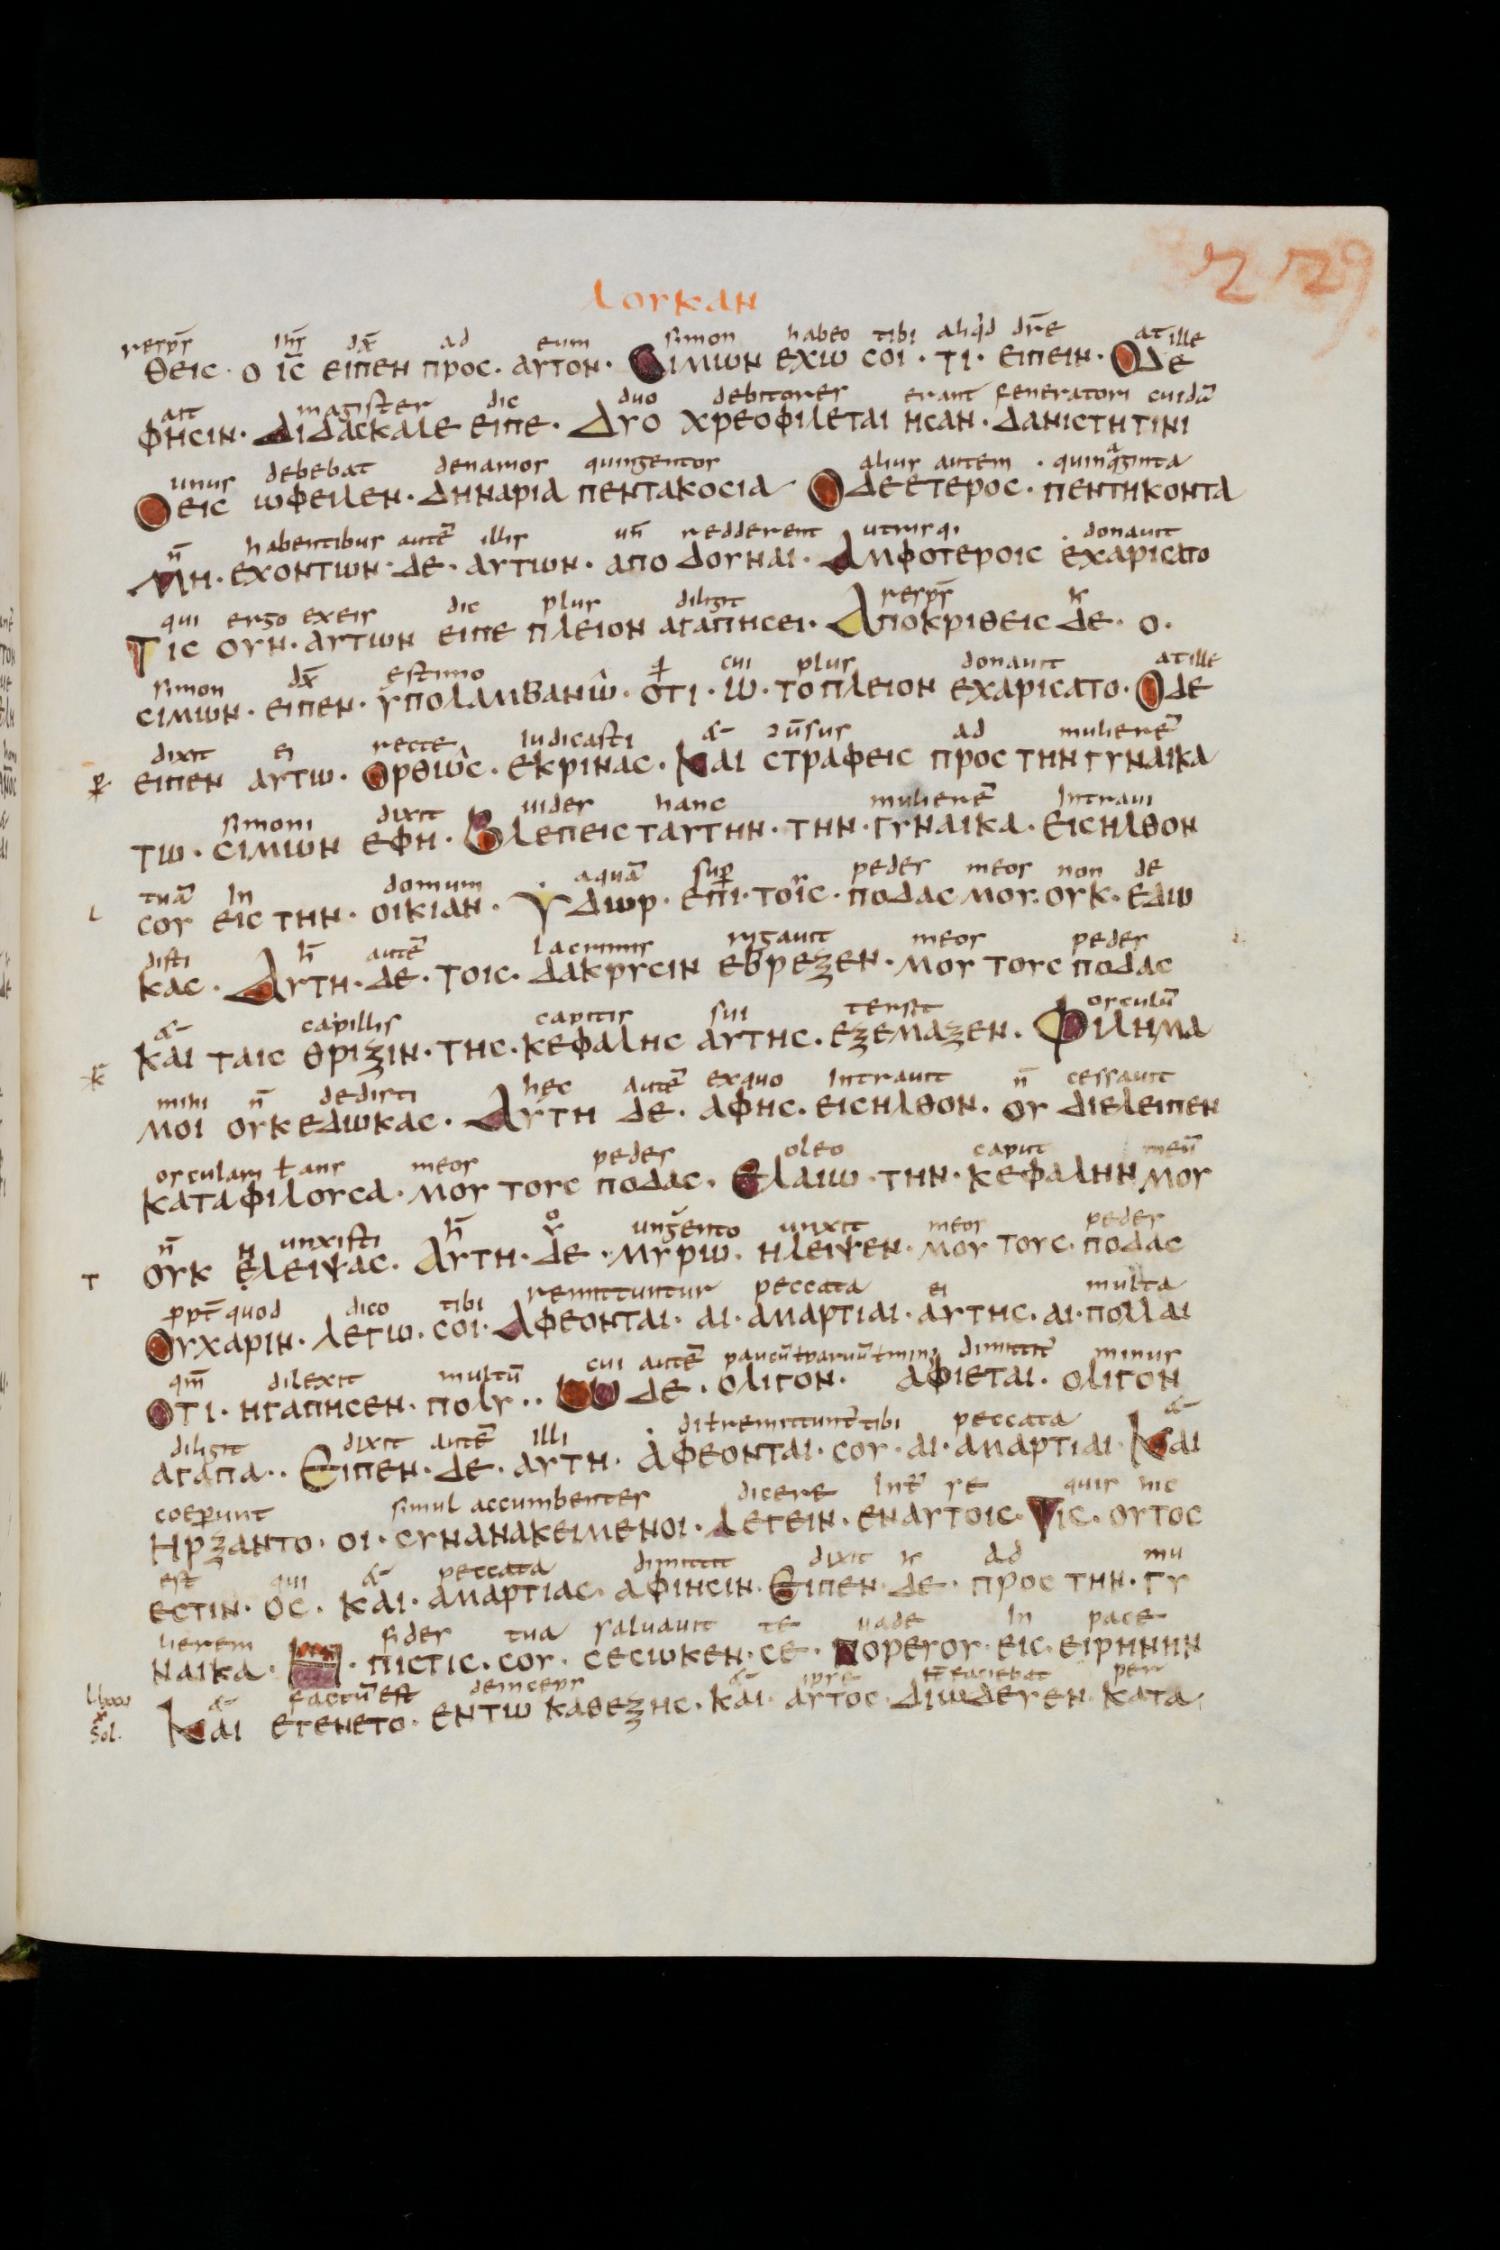 ΛΟΥΚΑΝ
229
respš ihs dx̄ ad eum simon habeo tibi aliqd drē at ille
ΘΕΙC · Ο ΙC̄ ΕΙΠΕΝ ΠΡΟC · ΑΥΤΟΝ · CΙΜΩΝ ΕΧΩ CΟΙ · ΤΙ · ΕΙΠΕΙΝ · Ο ΔΕ
ait magister dic duo debitores erant feneratori cuidā
ΦΗCΙΝ · ΔΙΔΑCΚΑΛΕ ΕΙΠΕ · ΔΥΟ ΧΡΕΟΦΙΛΕΤΑΙ ΗCΑΝ · ΔΑΝΙCΤΗ ΤΙΝΙ
unus debebat denarios quingentos alius autem quinqaginta
Ο ΕΙC ΩΦΕΙΛΕΝ · ΔΗΝΑΡΙΑ ΠΕΝΤΑΚΟCΙΑ Ο ΔΕ ΕΤΕΡΟC · ΠΕΝΤΗΚΟΝΤΑ
n̄ habentibus autē illis un̄ redderent utrisqi donauit
ΜΗ · ΕΧΟΝΤΩΝ · ΔΕ · ΑΥΤΩΝ · ΑΠΟ ΔΟΥΝΑΙ · ΑΜΦΟΤΕΡΟΙC ΕΧΑΡΙCΑΤΟ
qui ergo ex eis dic plus diligit respš
ΤΙC ΟΥΝ · ΑΥΤΩΝ ΕΙΠΕ ΠΛΕΙΟΝ ΑΓΑΠΗCΕΙ · ΑΠΟΚΡΙΘΕΙC ΔΕ · Ο ·
simon dx̄ estimo cui plus donauit at ille
CΙΜΩΝ · ΕΙΠΕΝ · ΥΠΟΛΑΜΒΑΝΩ · ΟΤΙ · Ω · ΤΟ ΠΛΕΙΟΝ ΕΧΑΡΙCΑΤΟ · Ο ΔΕ
dixit ei recte iudicasti & ɔūsus ad mulierē
ΕΙΠΕΝ ΑΥΤΩ · ΟΡΘΩC · ΕΚΡΙΝΑC · ΚΑΙ CΤΡΑΦΕΙC ΠΡΟC ΤΗΝ ΓΥΝΑΙΚΑ
simoni dixit uides hanc mulierē intraui
ΤΩ · CΙΜΩΝ ΕΦΗ · ΒΛΕΠΕΙC ΤΑΥΤΗΝ · ΤΗΝ · ΓΥΝΑΙΚΑ · ΕΙCΗΛΘΟΝ
tuā in domum aquā sup̄ pedes meos non de
CΟΥ ΕΙC ΤΗΝ · ΟΙΚΙΑΝ · ΥΔΩΡ · ΕΠΙ · ΤΟΙC · ΠΟΔΑC ΜΟΥ · ΟΥΚ · ΕΔΩ
disti h̄ autē lacrimis rigauit meos pedes
ΚΑC · ΑΥΤΗ · ΔΕ · ΤΟΙC · ΔΑΚΡΥCΙΝ ΕΒΡΕΞΕΝ · ΜΟΥ ΤΟΥC ΠΟΔΑC
& capillis capitis sui tersit osculū
ΚΑΙ ΤΑΙC ΘΡΙΞΙΝ · ΤΗC · ΚΕΦΑΛΗC ΑΥΤΗC · ΕΞΕΜΑΞΕΝ · ΦΙΛΗΜΑ
mihi n̄ dedisti hec autē ex quo intrauit n̄ cessauit
ΜΟΙ ΟΥΚ ΕΔΩΚΑC · ΑΥΤΗ ΔΕ · ΑΦΗC · ΕΙCΗΛΘΟΝ · ΟΥ ΔΙΕΛΕΙΠΕΝ
osculari ł ans meos pedes oleo caput meū
ΚΑΤΑΦΙΛΟΥCΑ · ΜΟΥ ΤΟΥC ΠΟΔΑC · ΕΛΑΙΩ · ΤΗΝ · ΚΕΦΑΛΗΝ ΜΟΥ
n̄ unxisti h̄ ungento unxit meos pedes
ΟΥΚ ΕΛΕΙΨΑC · ΑΥΤΗ · ΔΕ · ΜΥΡΩ · ΗΛΕΙΨΕΝ · ΜΟΥ ΤΟΥC · ΠΟΔΑC
ppt̄ quod dico tibi remittuntur peccata ei multa
ΟΥ ΧΑΡΙΝ · ΛΕΓΩ · CΟΙ · ΑΦΕΟΝΤΑΙ · ΑΙ · ΑΜΑΡΤΙΑΙ · ΑΥΤΗC · ΑΙ · ΠΟΛΛΑΙ
qm̄ dilexit multū cui autē paucū ł paruū ł min; dimittit̄ minus
ΟΤΙ · ΗΓΑΠΗCΕΝ · ΠΟΛΥ ·· Ω ΔΕ · ΟΛΙΓΟΝ · ΑΦΙΕΤΑΙ · ΟΛΙΓΟΝ
diligit dixit autē illi di ł remittunt̄ tibi peccata &
ΑΓΑΠΑ ·· ΕΙΠΕΝ · ΔΕ · ΑΥΤΗ · ΑΦΕΟΝΤΑΙ · CΟΥ · ΑΙ · ΑΜΑΡΤΙΑΙ · ΚΑΙ
coep̄unt simul accumbentes dicere int̄ se quis hic
ΗΡΞΑΝΤΟ · ΟΙ · CΥΝΑΝΑΚΕΙΜΕΝΟΙ · ΛΕΓΕΙΝ · ΕΝ ΑΥΤΟΙC · ΤΙC · ΟΥΤΟC
est qui & peccata dimittit dixit ad mu
ΕCΤΙΝ · ΟC · ΚΑΙ · ΑΜΑΡΤΙΑC · ΑΦΙΗCΙΝ · ΕΙΠΕΝ · ΔΕ · ΠΡΟC ΤΗΝ · ΓΥ
lierem fides tua saluauit te uade in pace
ΝΑΙΚΑ · Η · ΠΙCΤΙC · CΟΥ · CΕCΩΚΕΝ · CΕ · ΠΟΡΕΥΟΥ · ΕΙC · ΕΙΡΗΝΗΝ
& factū est deinceps & ipse it̄ faciebat per
ΚΑΙ ΕΓΕΝΕΤΟ · ΕΝ ΤΩ ΚΑΘΕΞΗC · ΚΑΙ · ΑΥΤΟC · ΔΙΩΔΕΥΕΝ · ΚΑΤΑ
Sol.